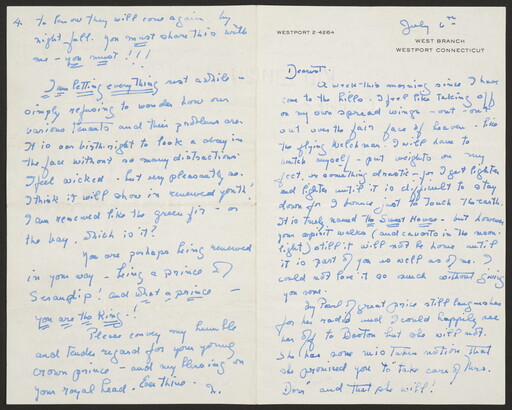 4. to know they will come again by
night-fall. You must share this with
me - you must!!!
I am letting everything rest awhile -
simply refusing to wonder how our
various tenants and their problems are.
It is our birth-right to look a day in
the face without so many distractions!
I feel wicked - but very pleasantly so.
I think it will show in renewed youth!
I am renewed like the green fir - or
the bay. Which is it?
You are perhaps being renewed
in your way - being a prince of
Serandip! and what a prince -
you are the King -!
Please convey my humble
and tender regard for your young
crown prince - and my blessing on
your royal head. Ever thine.
WESTPORT 2-4264
July 6th
WEST BRANCH
WESTPORT CONNECTICUT
Dearest:
A week this morning since I have
come to the hills. I feel like taking off
on my own spread wings - out - out
out over the fair face of heaven - like
the flying Welchman. I will have to
watch myself - put weights on my
feet, or something drastic - for I get lighter
and lighter until it is difficult to stay
down for I bounce just to touch the earth.
It is truly named the Sweet House - but however
your spirit walks (and cavorts in the moon-
light) still it will not be home until
it is part of you as well as of me. I
could not love it so much without giving
you some.
My Pearl of great price still languishes
for her radio and I could happily see
her off to Boston but she will not.
She has some mistaken notion that
she promised you to take care of Mrs.
Dors' and that she will!